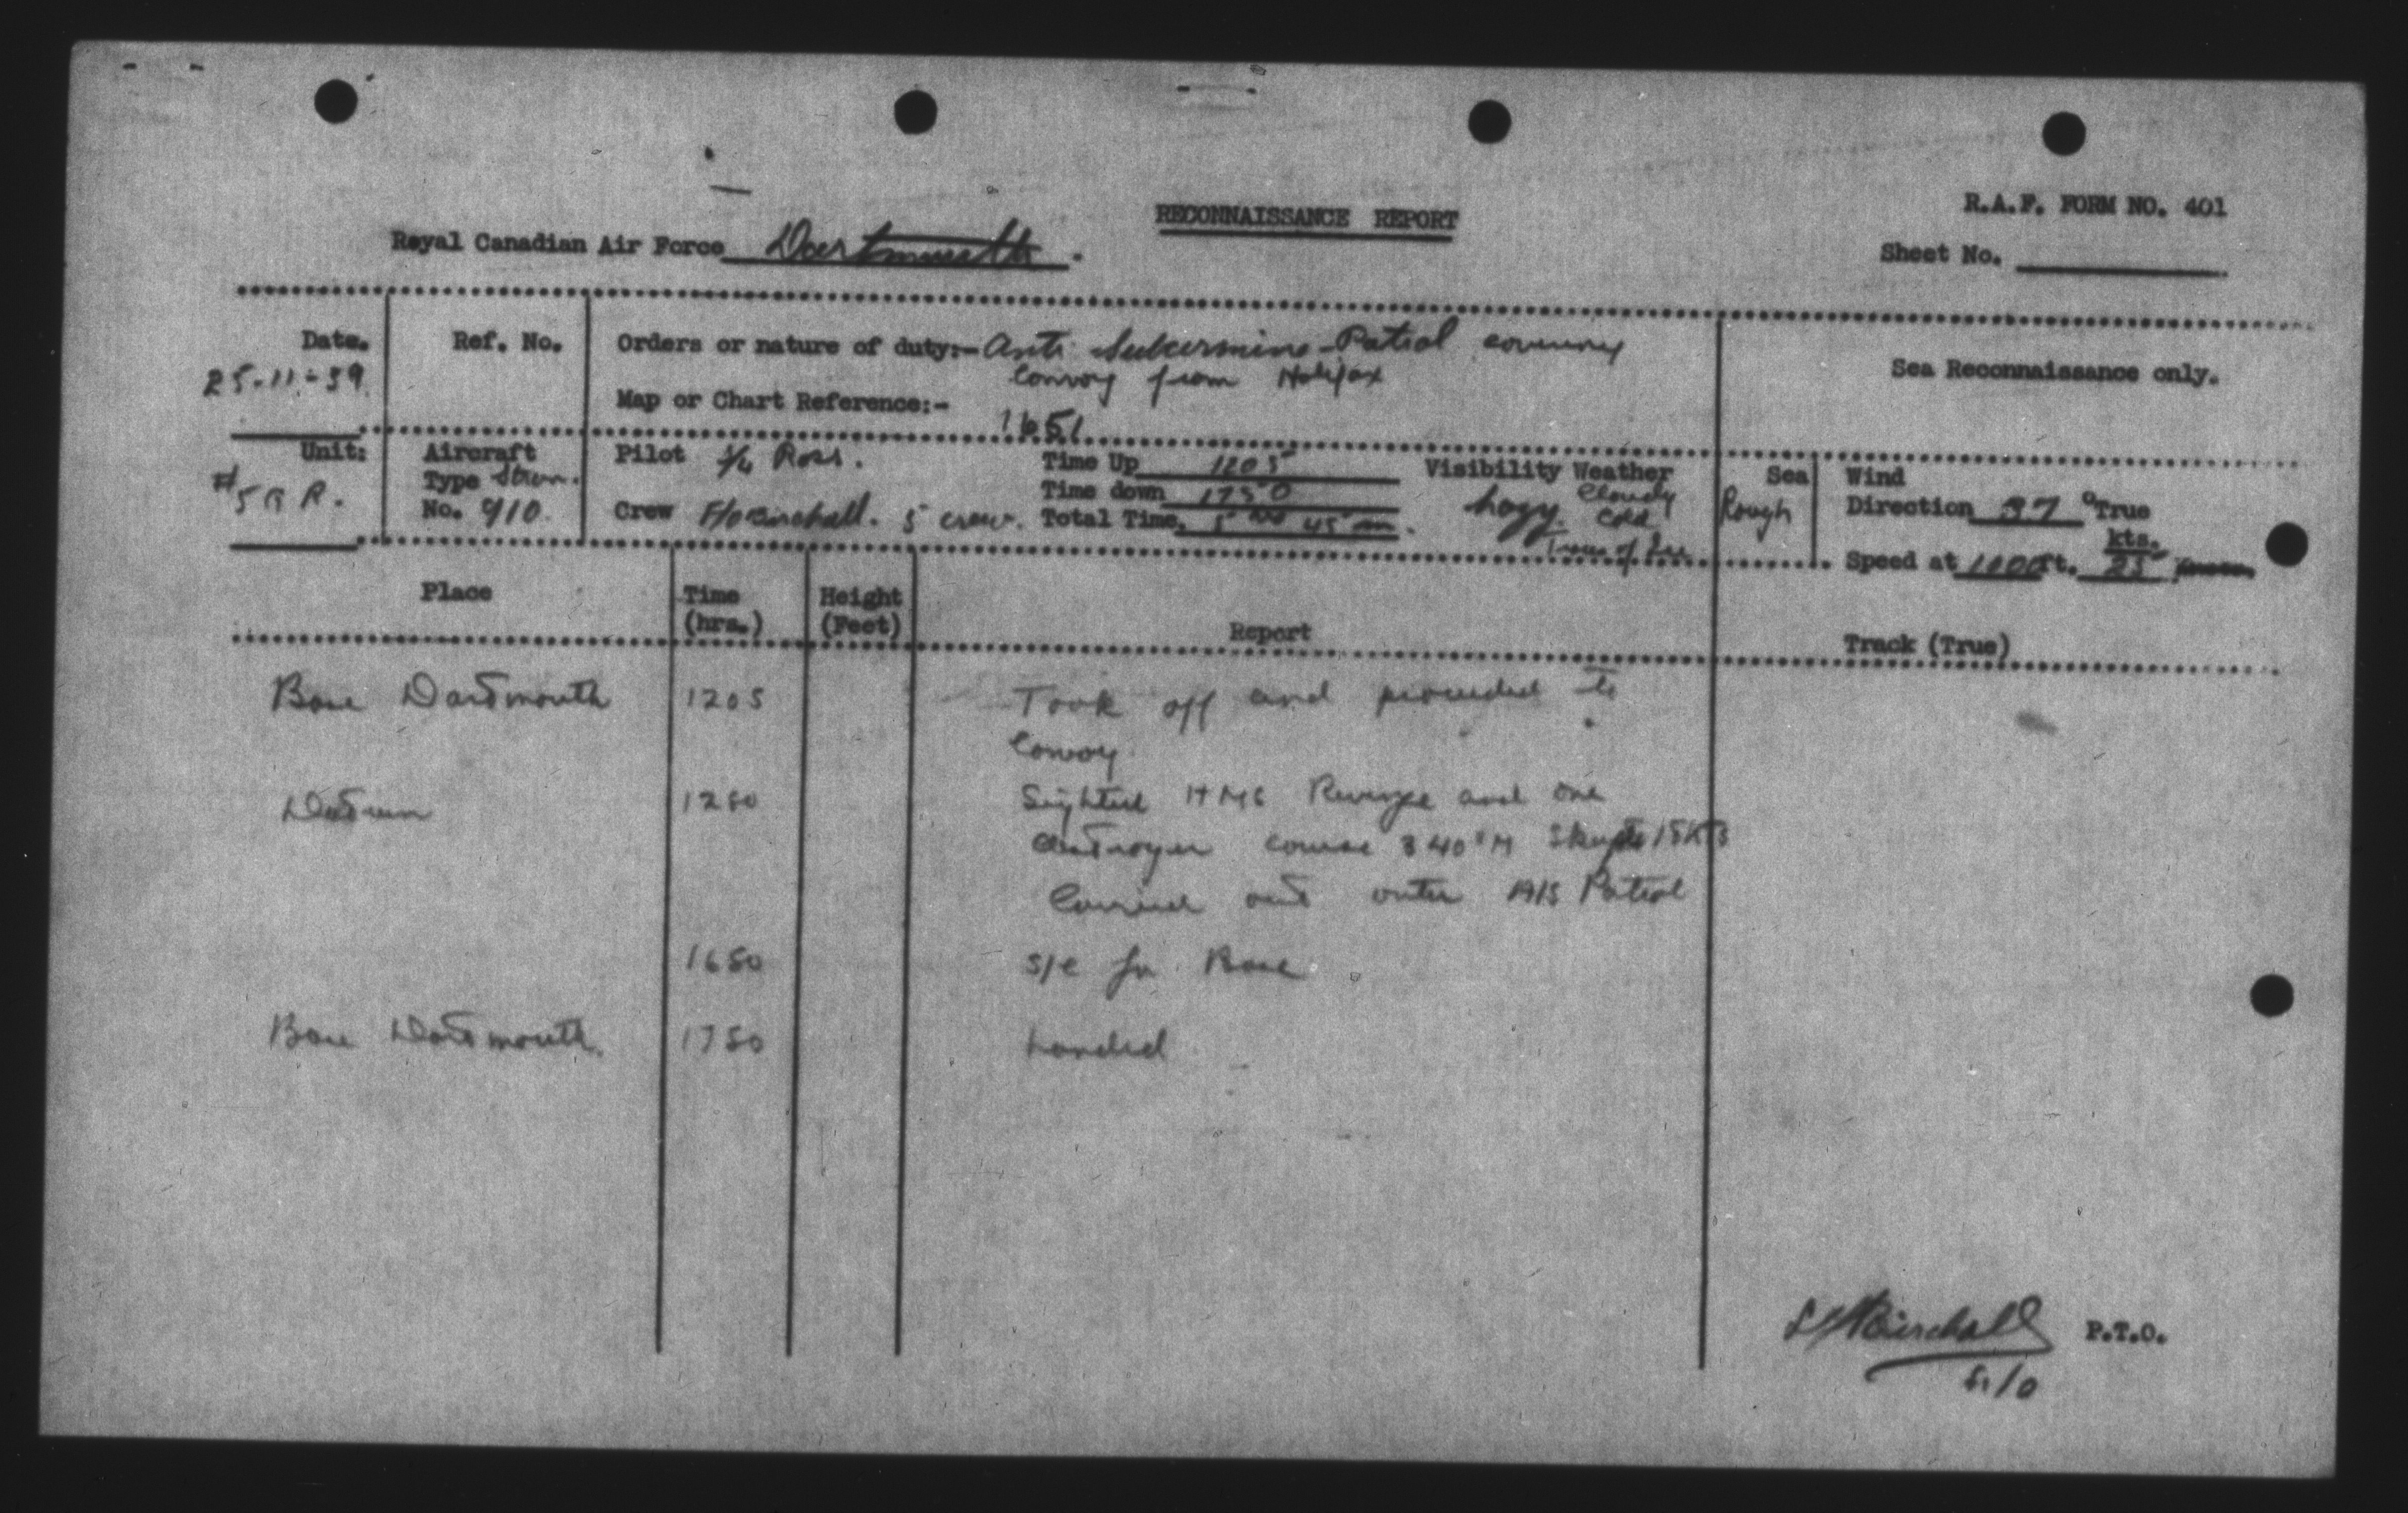 RECONNAISSANCE REPORT
R.A.F. FORM NO. 401
Royal Canadian Air Force Dartmouth.
Sheet No.
Date. 25-11-39
Ref. No.
Orders or nature of duty:- Anti Submarine Patrol covering
Convoy from Halifax
Map or Chart Reference:- 1651
Sea Reconnaissance only.
Unit: #5 G R.
Aircraft
Type Stran.
No. 910
Pilot S/L Ross.
Crew F/O Birchall. 5 crew.
Time Up 1205
Time down 1750
Total Time. 5 45 m.
Visibility Weather
hazy. Cloudy
Cold
Sea
Rough
Wind
Direction 37 °True
kts.
Speed at 1000 ft. 25
Place
Time
(hrs.)
Height
(Feet)
Report
Track (True)
Base Dartmouth 1205 Took off and proceeded to
Convoy
Datum 1250 Sighted HMS Revenge and one
destroyer course 340°M 15 KTS
Carried out outer A/S Patrol
1650 S/C for Base.
Base Dartmouth. 1750 Landed
Birchall P.T.O.